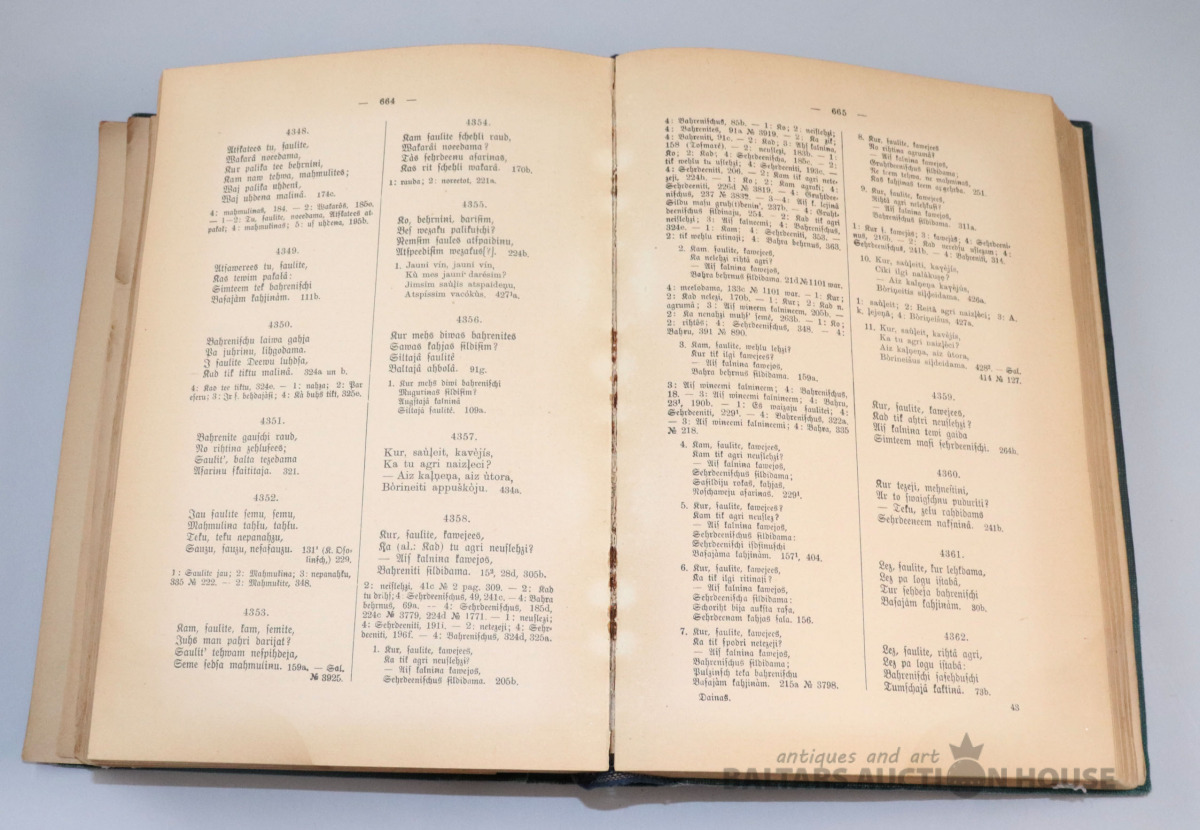 — 664 —
4348.
Atſkatees tu, ſaulite,
Wakarâ noeedama,
Kur palika tee behrnini,
Kam naw tehwa, mahmulites;
Waj palika uhdenî,
Waj uhdena malinâ. 174c.
4: mahmulinas, 184. — 2: Wakarôs, 185c.
— 1—2: Tu, ſaulite, noeedama, Atſkatees at-
pakaļ; 4: mahmulinas; 5: uſ uhdena, 195b.
4349.
Atſawerees tu, ſaulite,
Kas tewim pakaļâ:
Simteem tek bahreniſchi
Baſajâm kahjinâm. 111b.
4350.
Bahreniſchu laiwa gahja
Pa juhrinu, lihgodama.
J ſaulite Deewu luhdſa,
Kad tik tiktu malinâ. 324a un b.
4: Kad tee tiktu, 324c. — 1: nahza; 2: Par
eſeru; 3: Jr ſ. behdajâſi; 4: Kâ buhs tikt, 325c.
4351.
Bahrenite gauſchi raud,
No rihtina zehluſees;
Saulit', balta tezedama
Aſarinu ſkaititaja. 321.
4352.
Jau ſaulite ſemu, ſemu,
Mahmulina tahlu, tahlu.
Teku, teku nepanahzu,
Sauzu, ſauzu, neſaſauzu. 131¹ (K. Oſo-
linſch,) 229.
1: Saulite jau; 2: Mahmulina; 3: nepanahku,
335 № 222. — 2: Mahmulite, 348.
4353.
Kam, ſaulite, kam, ſemite,
Juhs man pahri darijat?
Saulit' tehwam neſpihdeja,
Seme ſedſa mahmulinu. 159a. — Sal.
№ 3925.
4354.
Kam ſaulite ſchehli raud,
Wakarâi noeedama?
Tâs ſehrdeenu aſarinas,
Kas rit ſchehli wakarâ. 170b.
1: rauda; 2: noreetot, 221a.
4355.
Ko, behrnini, dariſim,
Beſ wezaku palikuſchi?
Nemſim ſaules atſpaidinu,
Atſpeediſim wezakus[?]. 224b.
1. Jauni vîn, jauni vîn,
Kù mes jauni darésim?
Jimsim saûļis atspaideņu,
Atspissim vacôkûs. 427¹a.
4356.
Kur mehs diwas bahrenites
Sawas kahjas ſildiſim?
Siltajâ ſaulitê
Baltajâ ahbolâ. 91g.
1. Kur mehs diwi bahreniſchi
Mugurinas ſildiſim?
Augſtajâ kalninâ
Siltajâ ſaulitê. 109a.
4357.
Kur, saûļeit, kavêjîs,
Ka tu agri naizļeci?
— Aiz kaļņeņa, aiz ûtora,
Bôrineiti appuškôju. 434a.
4358.
Kur, ſaulite, kawejees,
Ka (al.: Kad) tu agri neuſlehzi?
— Aiſ kalnina kawejos,
Bahreniti ſildidama. 15³, 28d, 305b.
2: neiſlehzi, 41c № 2 pag. 309. — 2: Kad
tu drihſ; 4: Sehrdeeniſchus, 49, 241c. — 4: Bahra
behrnus, 69a. — 4: Sehrdeeniſchus, 185d,
224c № 3779, 224d № 1771. — 1: neuſlezi;
4: Sehrdeeniti, 191i. — 2: netezeji; 4: Sehr-
deeniti, 196f. — 4: Bahreniſchus, 324d, 325a.
1. Kur, ſaulite, kawejees,
Ka tik agri neuſlehzi?
— Aiſ kalnina kawejos,
Sehrdeeniſchus ſildidama. 205b.
— 665 —
4: Bahreniſchus, 85b. — 1: Ko; 2: neiſlehzi;
4: Bahrenites, 91a № 3919. — 2: Ka tik;
4: Bahreniti, 91c. — 2: Kad; 3: Ahſ kalnina,
158 (Toſmarê). — 2: neuſlezi, 183b. — 1:
Ko; 2: Kad; 4: Sehrdeeniſcha, 185c. — 2:
tik wehlu tu uſlehzi; 4: Sehrdeeniti, 193c. —
4: Sehrdeeniti, 206. — 2: Kam tik agri nete-
zeji, 224b. — 1: Ko; 2: Kam agraki; 4:
Sehrdeeniti, 226d № 3819. — 4: Gruhtdee-
niſchus, 237 № 3832. — 3—4: Aiſ k. lejinâ
Sildu maſu gruh(t)deenin', 237b. — 4: Gruht-
deeniſchus ſildinaju, 254. — 2: Kad tik agri
neiſlehzi; 3: Aiſ kalneemi; 4: Bahreniſchus,
324c. — 1: Kam; 4: Sehrdeeniti, 353. —
2: tik wehlu ritinaji; 4: Bahra behrnus, 363.
2. Kam, ſaulite, kawejees,
Ka nelehzi rihtâ agri?
— Aiſ kalnina kawejos,
Bahra behrnus ſildidama. 21d № 1101 war.
4: meelodama, 133c № 1101 war. — 1: Kur;
2: Kad nelezi, 170b. — 1: Kur; 2: Kad n.
agrumâ; 3: Aiſ wineem kalnineem, 205b. —
2: Ka nenahzi muhſ' ſemê, 263b. — 1: Ko;
2: rihtôs; 4: Sehrdeeniſchus, 348. — 4:
Bahru, 391 № 890.
3. Kam, ſaulite, wehlu lehzi?
Kur tik ilgi kawejees?
— Aiſ kalnina kawejos,
Bahra behrnus ſildidama. 159a.
3: Aiſ wineemi kalnineem; 4: Bahreniſchus,
18. — 3: Aiſ wineemi kalnineem; 4: Bahru,
28¹, 190b. — 1: Es waizaju ſaulitei; 4:
Sehrdeeniti, 229¹. — 4: Bahreniſchus, 322a.
— 3: Aiſ wineemi kalnineemi; 4: Bahra, 335
№ 218.
4. Kam, ſaulite, kawejees,
Kam tik agri neuſlehzi?
— Aiſ kalnina kawejos,
Sehrdeeniſchus ſildidama;
Saſildiju rokas, kahjas,
Noſchaweju aſarinas. 229¹.
5. Kur, ſaulite, kawejees?
Kam tik agri neuſlez?
— Aiſ kalnina kawejos,
Sehrdeeniſchus ſildidama:
Sehrdeeniſchi iſdſinuſchi
Baſajâma kahjinâm. 157¹, 404.
6. Kur, ſaulite, kawejees,
Ka tik ilgi ritinaji?
— Aiſ kalnina kawejos,
Sehrdeeniſcha ſildidama:
Schoriht bija aukſta raſa,
Sehrdeenam kahjas ſala. 156.
7. Kur, ſaulite, kawejees,
Ka tik ſpodri netezeji?
— Aiſ kalnina kawejos,
Bahreniſchus ſildidama;
Pulzinſch teka bahreniſchu
Baſajâm kahjinâm. 215a № 3798.
Dainas.
8. Kur, ſaulite, kawejees
No rihtina agrumâ?
— Aiſ kalnina kawejos,
Gruhtdeeniſchus ſildidama;
Ne teem tehwa, ne mahminas,
Kas kahjinas teem apgehrba. 251.
9. Kur, ſaulite, kawejees,
Rihtâ agri nelehzi?
— Aiſ kalnina kawejos,
Bahreniſchus ſildidama. 311a.
1: Kur ſ. kawejâs; 3: kawejâs; 4: Sehrdeeni-
nus, 216b. — 2: Kad nereiſu uſlezam; 4:
Sehrdeeniſchus, 241b. — 4: Bahreniti, 314.
10. Kur, saûļeit, kavêjîs,
Ciki ilgi nalākuņe?
— Aiz kaļņeņa kavêjûs,
Bôriņeitis siļdeidama. 426a.
1: saûļeit; 2: Reitâ agri naizļêci; 3: A.
k. ļejeņâ; 4: Bôriņeišus, 427a.
11. Kur, saûļeit, kavêjîs,
Ka tu agri naizļeci?
— Aiz kaļņeņa, aiz ûtora,
Bôrineišus siļdeidama. 428². — Sal.
414 № 127.
4359.
Kur, ſaulite, kawejees,
Kad tik ahtri neuſlehzi?
Aiſ kalnina tewi gaida
Simteem maſi ſehrdeeniſchi. 264b.
4360.
Kur tezeji, mehneſtini,
Ar to ſwaigſchnu puduriti?
— Teku, zelu rahdidams
Sehrdeeneem nakſninâ. 241b.
4361.
Lez, ſaulite, kur lehkdama,
Lez pa logu iſtabâ,
Tur ſehdeja bahreniſchi
Baſajâm kahjinâm. 80b.
4362.
Lez, ſaulite, rihtâ agri,
Lez pa logu iſtabâ:
Bahreniſchi ſaſehduſchi
Tumſchajâ kaktinâ. 73b.
43
antiques and art
BALTARS AUCTION HOUSE